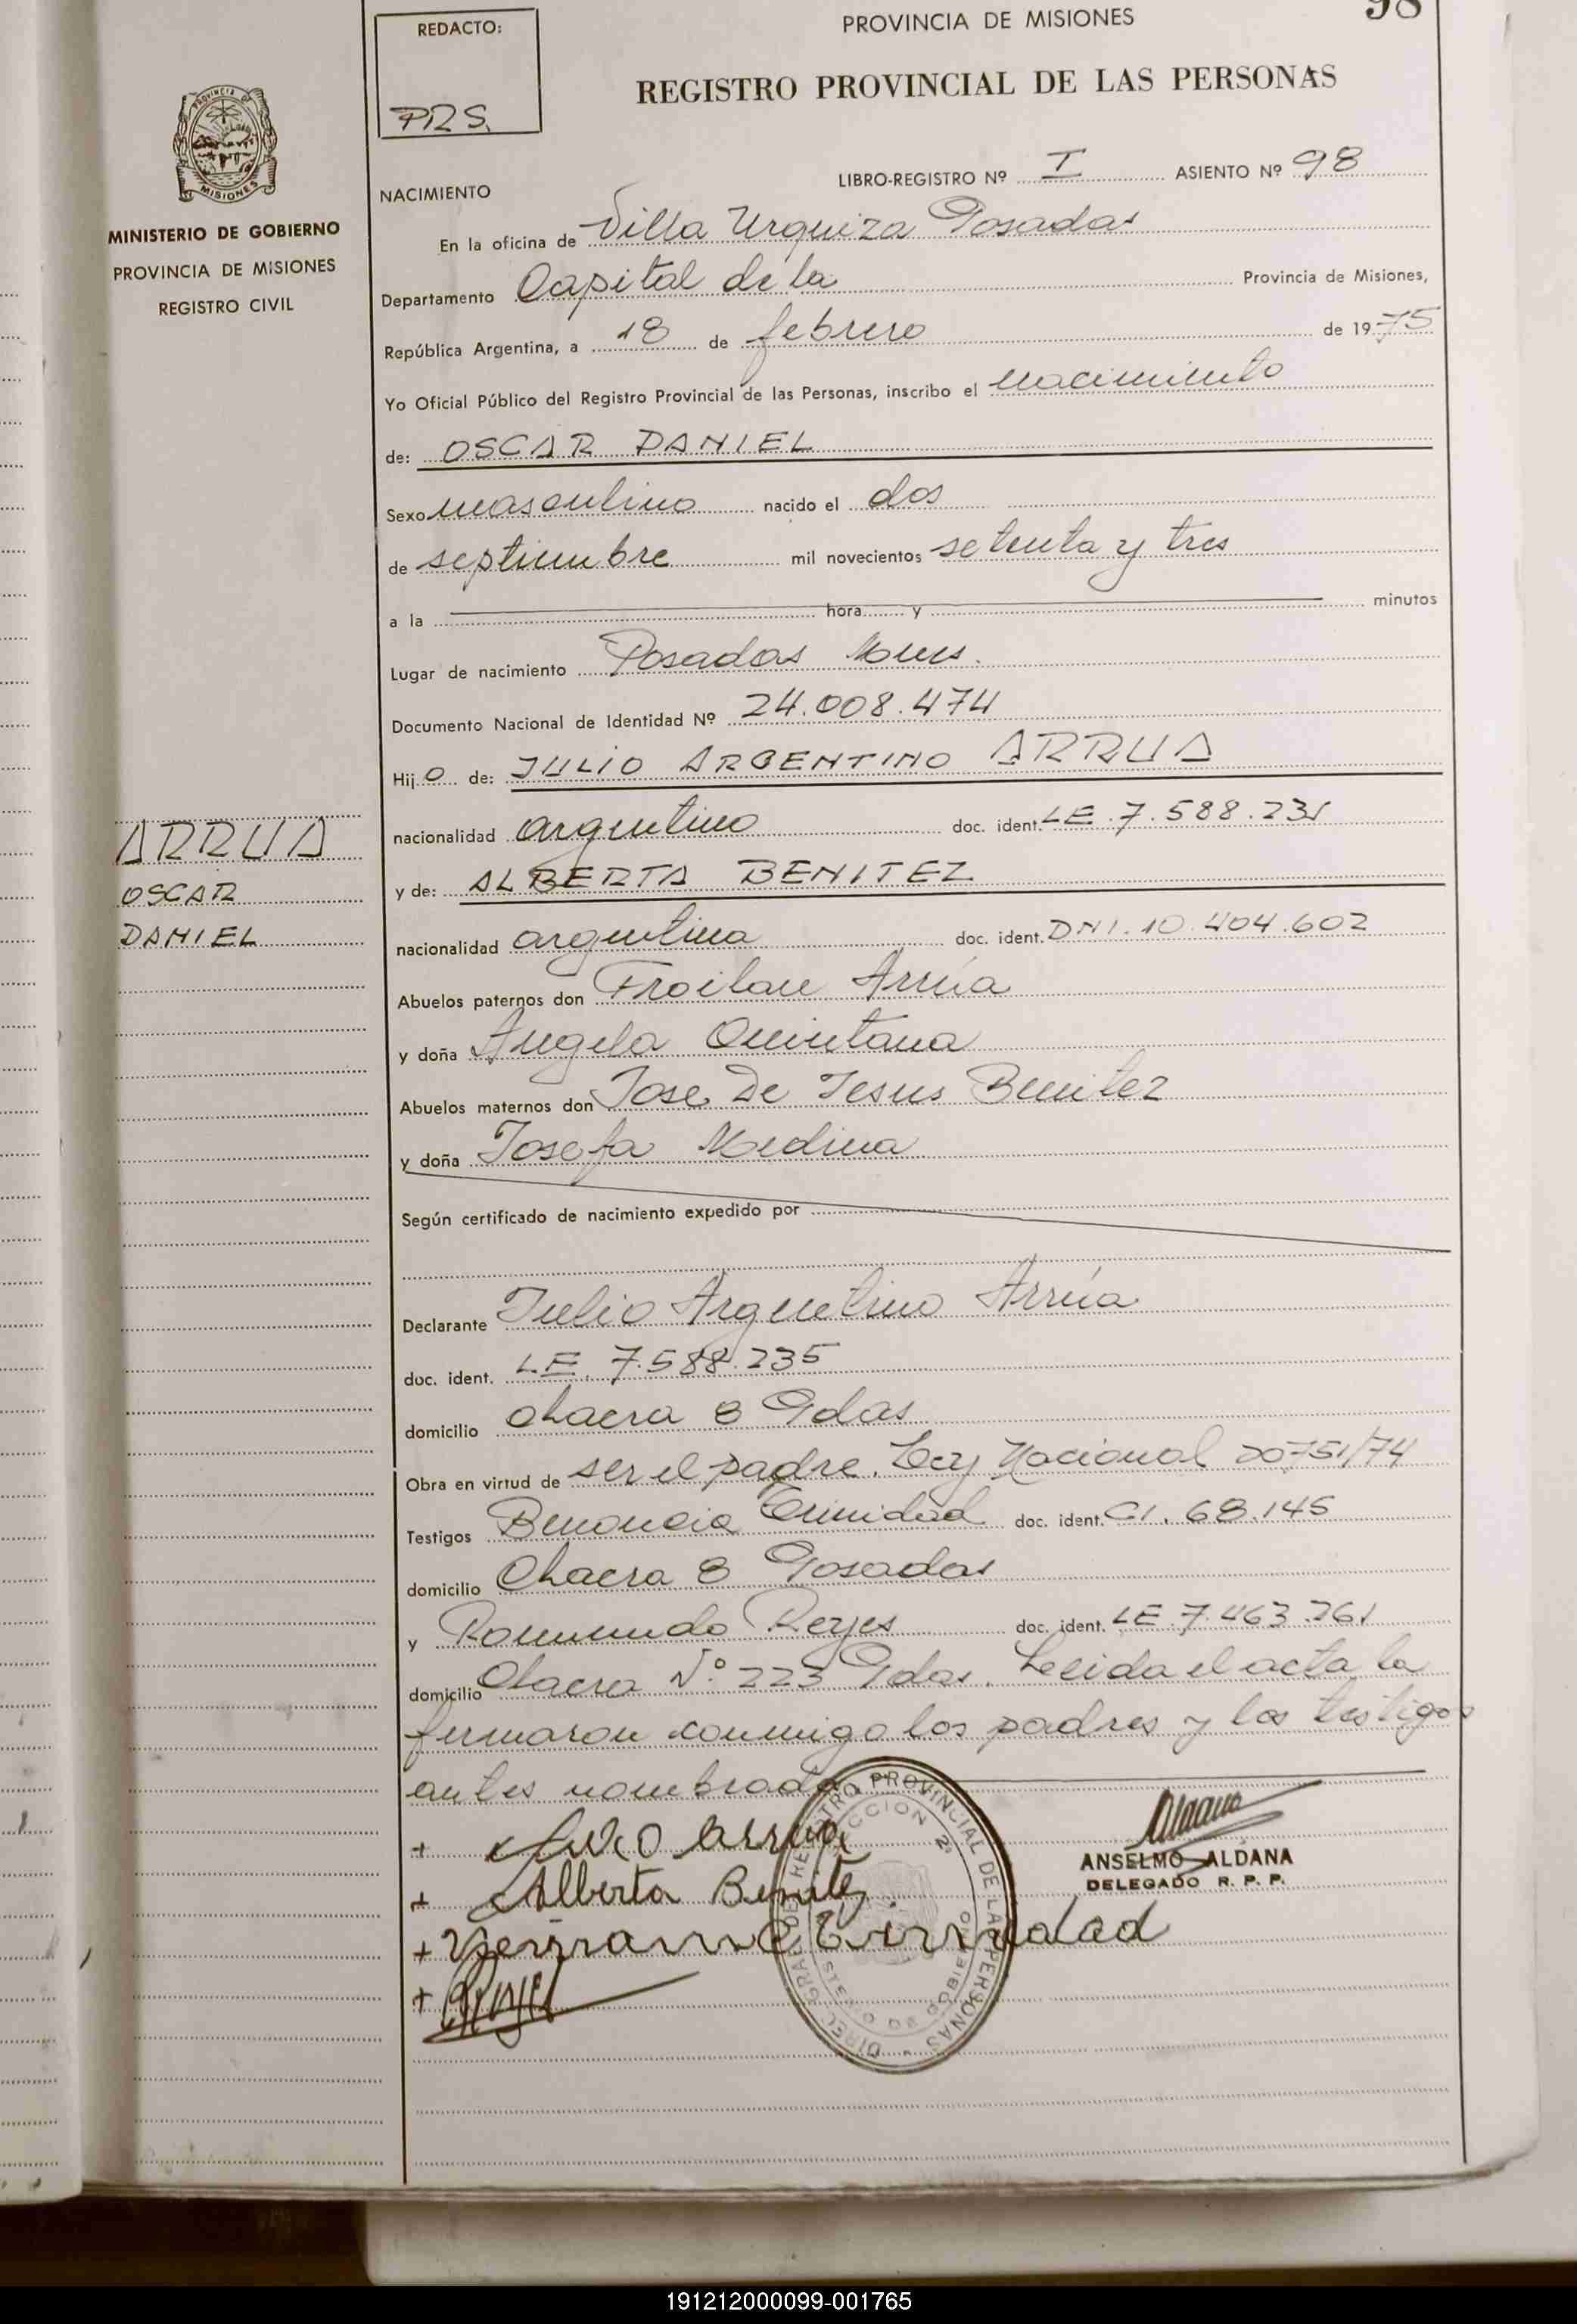 98
REDACTO:
PRS.
PROVINCIA DE MISIONES
REGISTRO PROVINCIAL DE LAS PERSONAS
PROVINCIA DE
MISIONES
MINISTERIO DE GOBIERNO
PROVINCIA DE MISIONES
REGISTRO CIVIL
LIBRO-REGISTRO Nº I ASIENTO Nº 98
NACIMIENTO
En la oficina de Villa Urquiza Posadas
Departamento Capital de la Provincia de Misiones,
República Argentina, a 18 de febrero de 1975
Yo Oficial Público del Registro Provincial de las Personas, inscribo el nacimiento
de: OSCAR DANIEL
Sexo masculino nacido el dos
de septiembre mil novecientos setenta y tres
a la hora y minutos
Lugar de nacimiento Posadas Mnes.
Documento Nacional de Identidad Nº 24.008.474
Hijo de: JULIO ARGENTINO ARRUA
nacionalidad argentino doc. ident. LE.7.588.231
y de: ALBERTA BENITEZ
nacionalidad argentina doc. ident. DNI.10.404.602
Abuelos paternos don Froilan Arrúa
y doña Angela Quintana
Abuelos maternos don Jose De Jesus Benitez
y doña Josefa Medina
Según certificado de nacimiento expedido por
Declarante Julio Argentino Arrúa
doc. ident. LE. 7.588.235
domicilio chacra 8 Pdas
Obra en virtud de ser el padre. Ley Nacional 20751/74
Testigos Trinidad doc. ident. CI. 68.145
domicilio Chacra 8 Posadas
y Reyes doc. ident. LE 7.463.761
domicilio Chacra Nº 223 Pdas. Leida el acta la
firmaron conmigo los padres y los testigos
antes nombrados
ARRUA
OSCAR
DANIEL
+ Julio Arrua
+ Alberta Benitez
+ Trinidad
+
ANSELMO ALDANA
DELEGADO R. P. P.
REGISTRO PROVINCIAL DE LAS PERSONAS
191212000099-001765